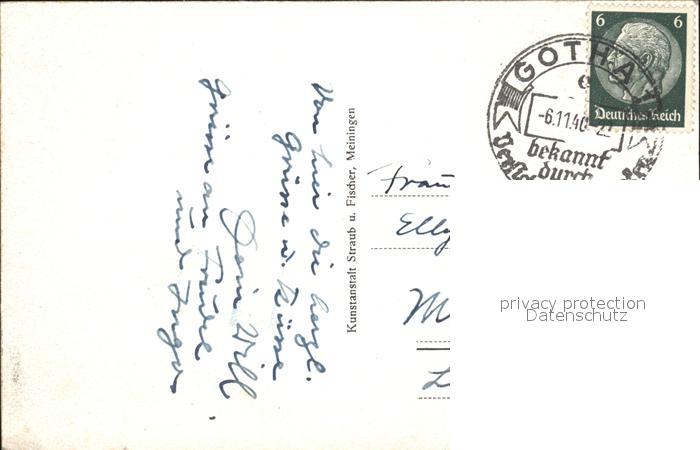 Von hier die herzl.
Grüsse u. Küsse
Dein Will
Grüsse an Traudel
und Ingo.
Kunstanstalt Straub u. Fischer, Meiningen
Frau
Elly
M
L
6 6
Deutsches Reich
GOTHA
-6.11.40
bekannt
durch
privacy protection
Datenschutz